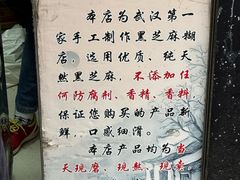 本店为武汉第一
家手工制作黑芝麻糊
店，选用优质、纯天
然黑芝麻，不添加任
何防腐剂、香精、香料
保证您购买的产品新
鲜，口感细滑。
本店产品均为当
天现磨、现熬、现卖